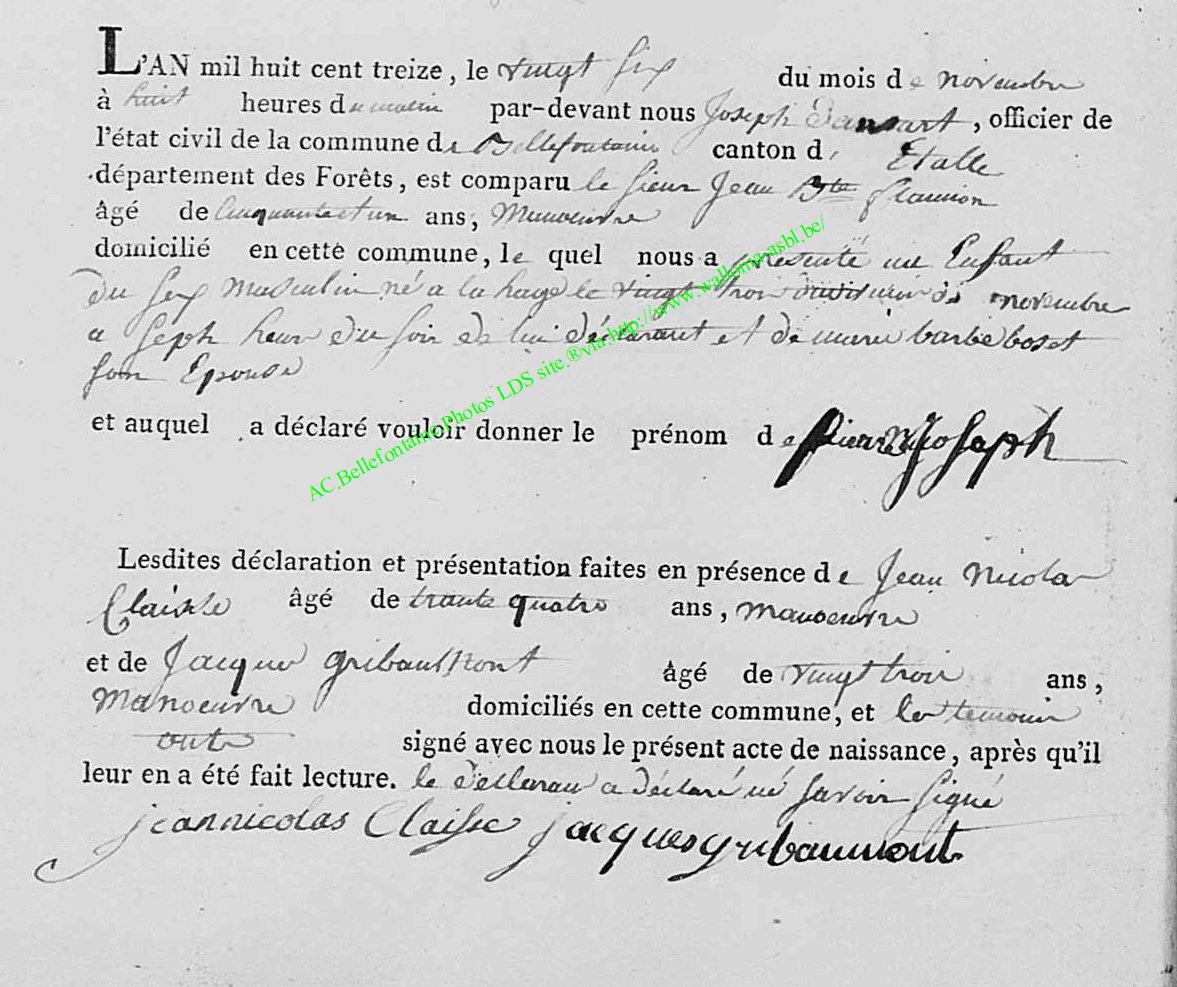 L'AN mil huit cent treize, le vingt six du mois de novembre
à huit heures du matin par-devant nous Joseph Dansart, officier de
l'état civil de la commune de Bellefontaine canton d' Etalle
département des Forêts, est comparu le sieur Jean Bte
âgé de cinquante et un ans, Manoeuvre
domicilié en cette commune, le quel nous a présenté un Enfant
du sex Masculin né a la haye le vingt trois novembre
a seph heur du soir de lui déclarant et de marie barbe boset
son Epouse
et auquel a déclaré vouloir donner le prénom de pierre Joseph
AC.Bellefontaine.Photos LDS site.®via.http://www.wallonia-asbl.be/
Lesdites déclaration et présentation faites en présence de Jean Nicolas
Claisse âgé de trante quatre ans, manoeuvre
et de Jacque gribaumont âgé de vingt trois ans,
Manoeuvre domiciliés en cette commune, et les temoins
ont signé avec nous le présent acte de naissance, après qu'il
leur en a été fait lecture. le a déclaré né savoir signé
jeannicolas Claisse jacques gribaumont